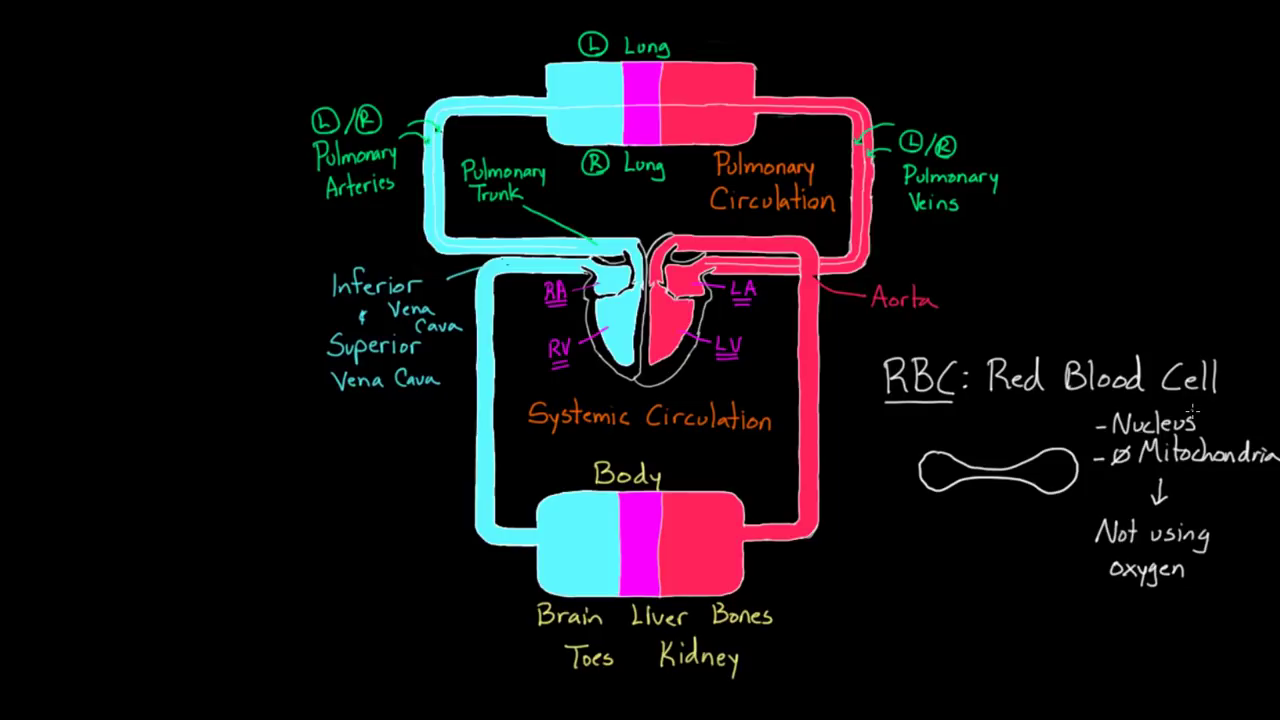 Ⓛ Lung
Ⓛ/Ⓡ
Pulmonary
Arteries
Pulmonary
Trunk
Ⓡ Lung
Pulmonary
Circulation
Ⓛ/Ⓡ
Pulmonary
Veins
Inferior
& Vena
Cava
Superior
Vena Cava
RA
LA
RV
LV
Aorta
Systemic Circulation
Body
Brain Liver Bones
Toes Kidney
RBC: Red Blood Cell
- Nucleus
- ∅ Mitochondria
↓
Not using
oxygen